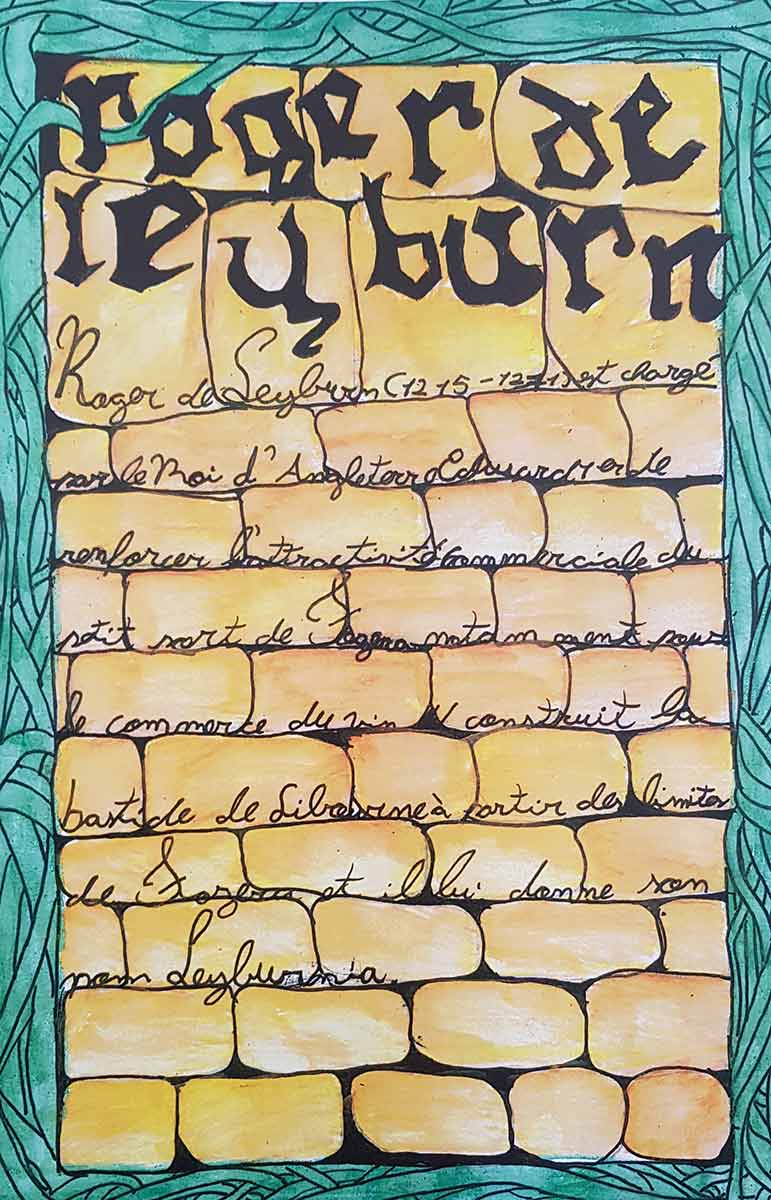 roger de
leyburn
Roger de Leyburn (1215-1271) est chargé
par le Roi d'Angleterre Edward 1er de
renforcer l'attractivité commerciale du
petit port de Fozera notamment pour
le commerce du vin. Y construit la
bastide de Libourne à partir des limites
de Fozera et il lui donne son
nom Leyburnia.